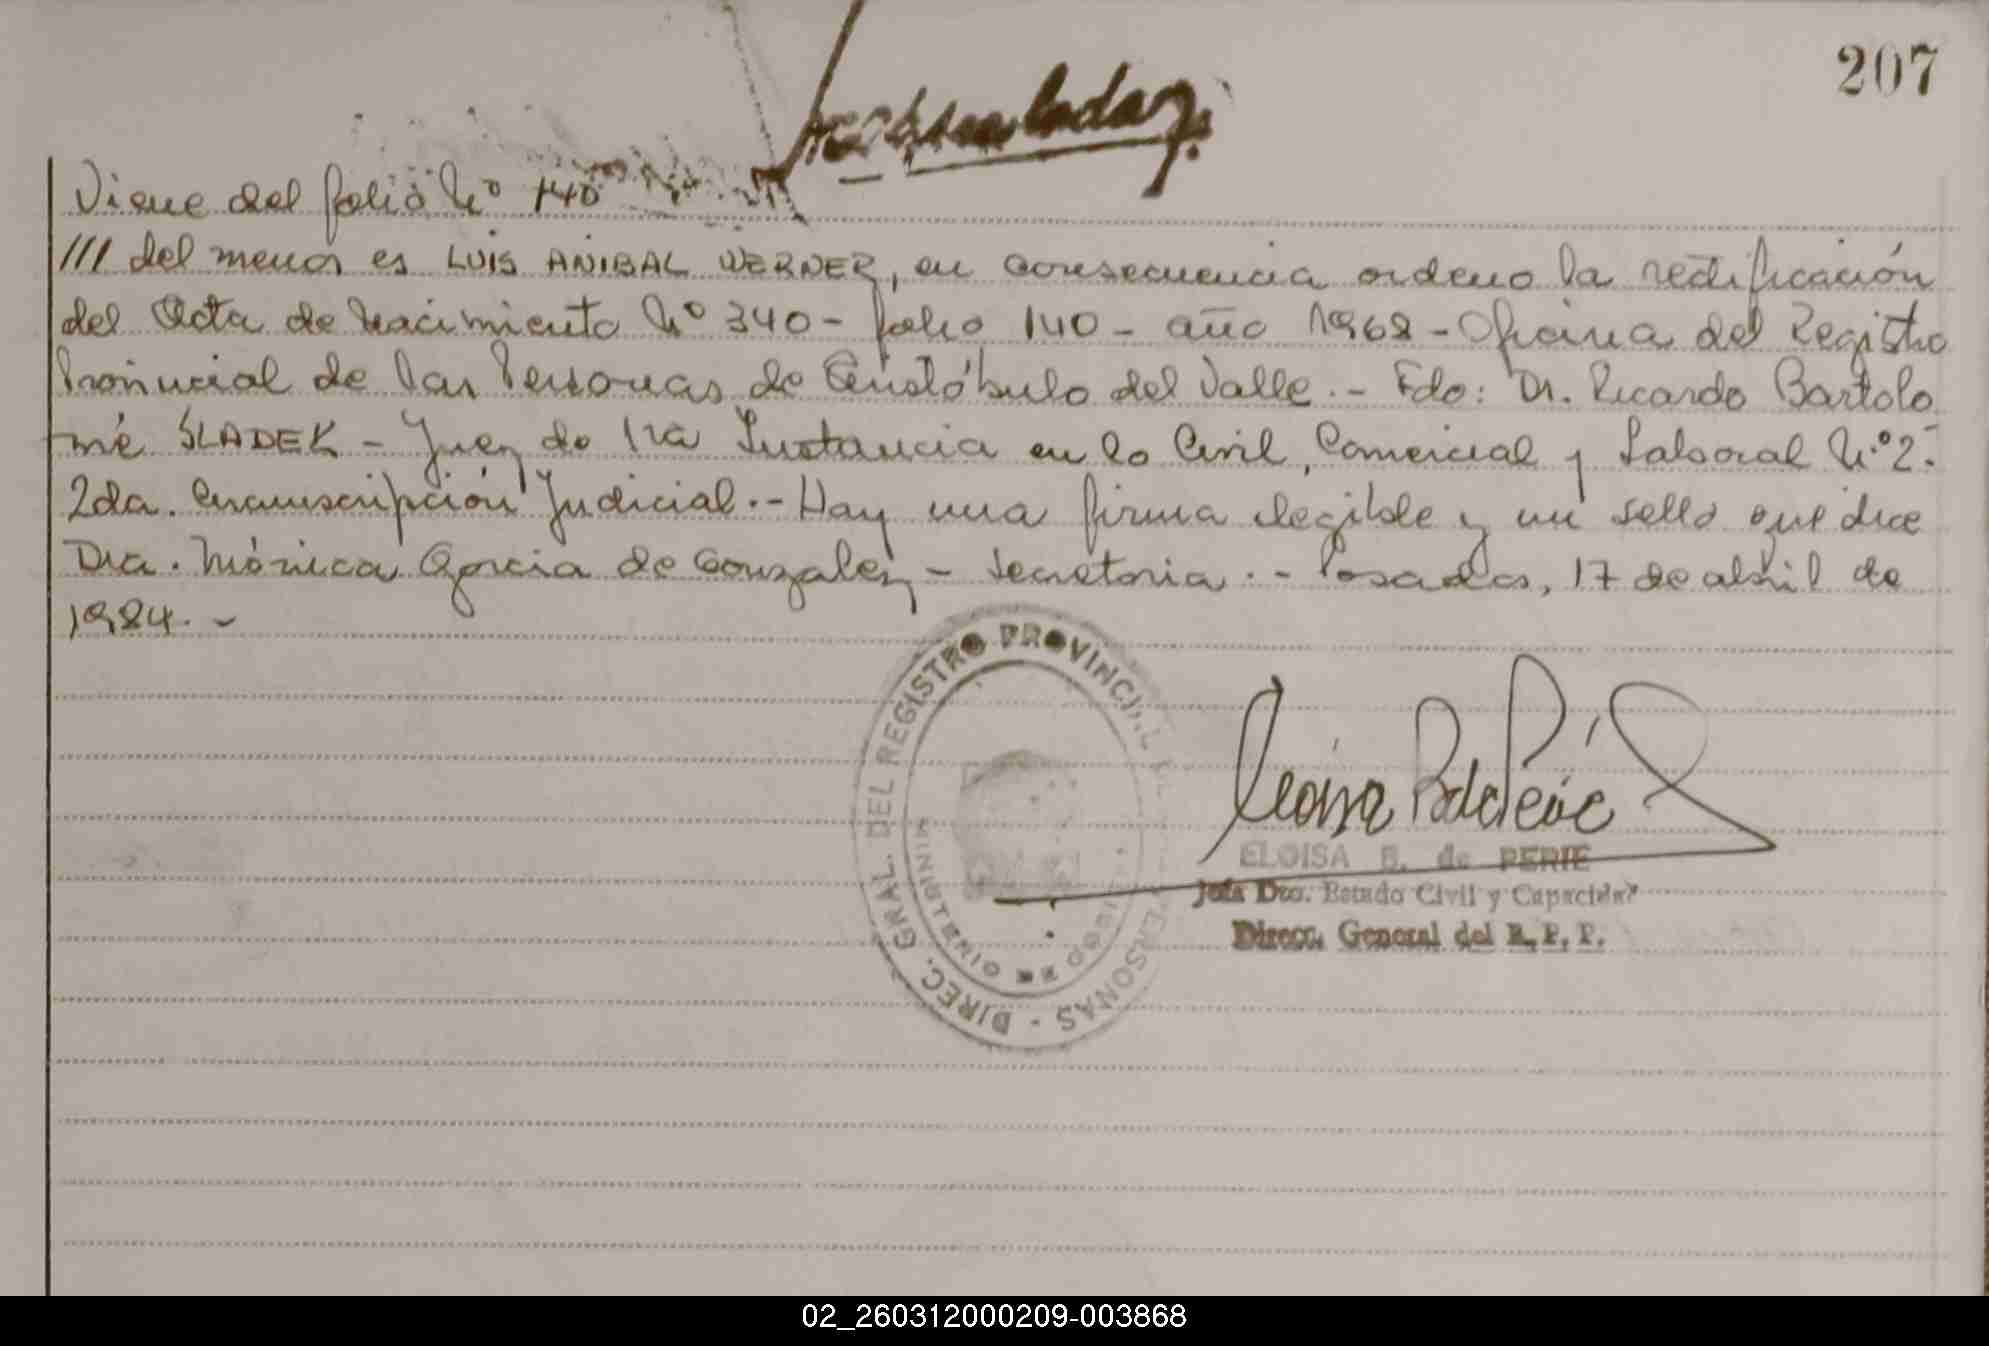 207
Viene del folio Nº 140
/// del menor es LUIS ANIBAL WERNER, en consecuencia ordeno la rectificación
del Acta de Nacimiento Nº 340 - folio 140 - año 1968 - Oficina del Registro
Provincial de las Personas de Aristóbulo del Valle.- Fdo: Dr. Ricardo Bartolo
mé SLADEK - Juez de 1ra Instancia en lo Civil, Comercial y Laboral N.º 2.-
2da. Circunscripción Judicial.- Hay una firma ilegible y un sello que dice
Dra. Mónica García de Gonzalez - Secretaria.- Posadas, 17 de abril de
1984.-
DIREC. GRAL. DEL REGISTRO PROVINCIAL PERSONAS -
MINISTERIO DE GOBIERNO
ELOISA B. de PERIE
Jefa Dto. Estado Civil y Capacidad
Direcc. General del R. P. P.
02_260312000209-003868